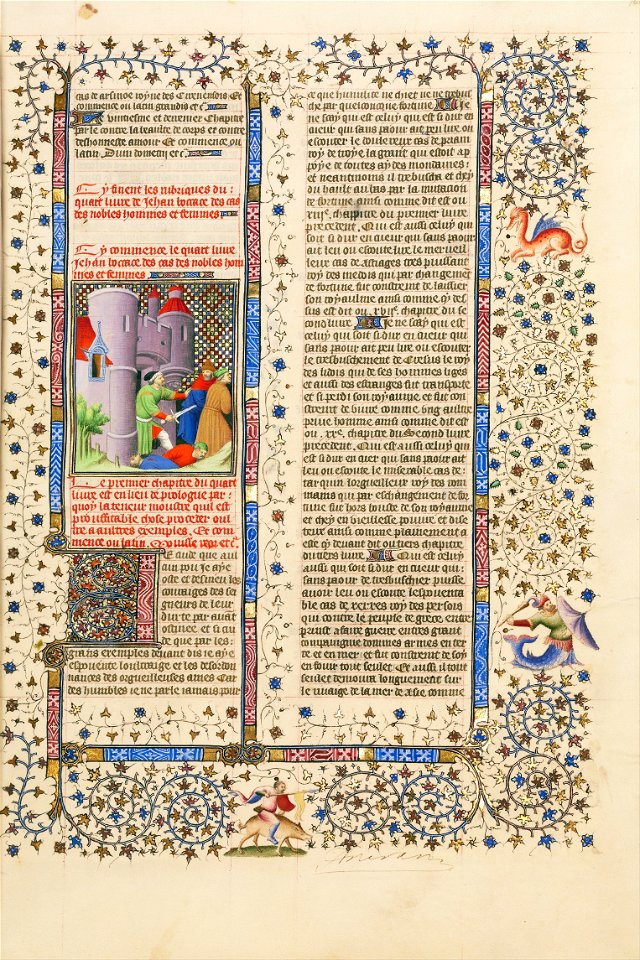 cas de arsinoe royne des Cirenensois Et
commence ou latin grandis etc
Huitiesme et derrenier Chapitre
parle contre la beaulte de corps et contre
deshonneste amour Et commence ou
latin etc
Cy finent les rubriques du
quart livre de Jehan bocace des cas
des nobles hommes et femmes
Cy commence le quart livre
Jehan bocace des cas des nobles hom
mes et femmes
Le premier chapitre du quart
livre est en lieu de prologue par
quoy la teneur monstre quil est
prouffitable chose proceder oul
tre a aultres exemples. Et com
mence ou latin. etc.
Je cude que aul
cun pou Je aye
oste et
des sei
gneurs de leur
dur te par avant
obstinee. et si au
de que par les
grans exemples devant dis ie aye
espovente loultraige et les desordon
nances des orgueilleuses ames Car
des humbles ie ne parle iamais pour
ce que humilite ne chiet ne ne trebus
che par quelconque fortune. Je
ne scay qui est celuy qui est si dur en
cueur qui sans paour ait peu lire ou
escouter le cas de priam
roy de troye la grant qui estoit ap
puye de toutes aydes mondaines
et neantmoins il trebuscha et chey
du hault au bas par la mutacion
de fortune ainsi comme dit est ou
xiiie. chapitre du premier livre
precedent. Qui est aussi celuy qui
soit si dur en cueur qui sans paour
ait leu ou escoute lire le merveil
leux cas de Astiages tres puissant
roy des medois qui par changement
de fortune fut constreint de laissier
son royaulme ainsi comme cy des
sus est dit ou xviie. chapitre du se
cond livre. Je ne scay qui est
celuy qui soit si dur en cueur qui
sans paour ait peu lire ou escouter
le tresbuschement de Cresus le roy
des lidois qui de ses hommes liges
et aussi des estranges fut transporte
et si perdi son royaume et fut con
streint de vivre comme ung aultre
prive homme ainsi comme dit est
ou xxe. chapitre du second livre
precedent. Qui est aussi celuy qui
est si dur en cuer qui sans paour ait
leu ou escoute le miserable cas de
tarquin lorgueilleux roy des rom
mains qui par eschangement de for
tune fut hors boute de son royaume
et chey en vieillesse povrete et dis
tere ainsi comme plainement a
este cy devant dit ou tiers chapitre
du tiers livre. Qui est celuy
aussi qui soit si dur en cueur qui
sans paour de tresbuschier puisse
avoir leu ou escoute lespoventa
ble cas de xerxes roy des persois
qui contre le peuple de grece entre
prinst a faire guerre en tres grant
compaignie dommes armes en ter
re et en mer et fut constreint de soy
en fouir tout seulet. Et aussi il tout
seulet demoura longuement sur
le rivaige de la mer de asie comme